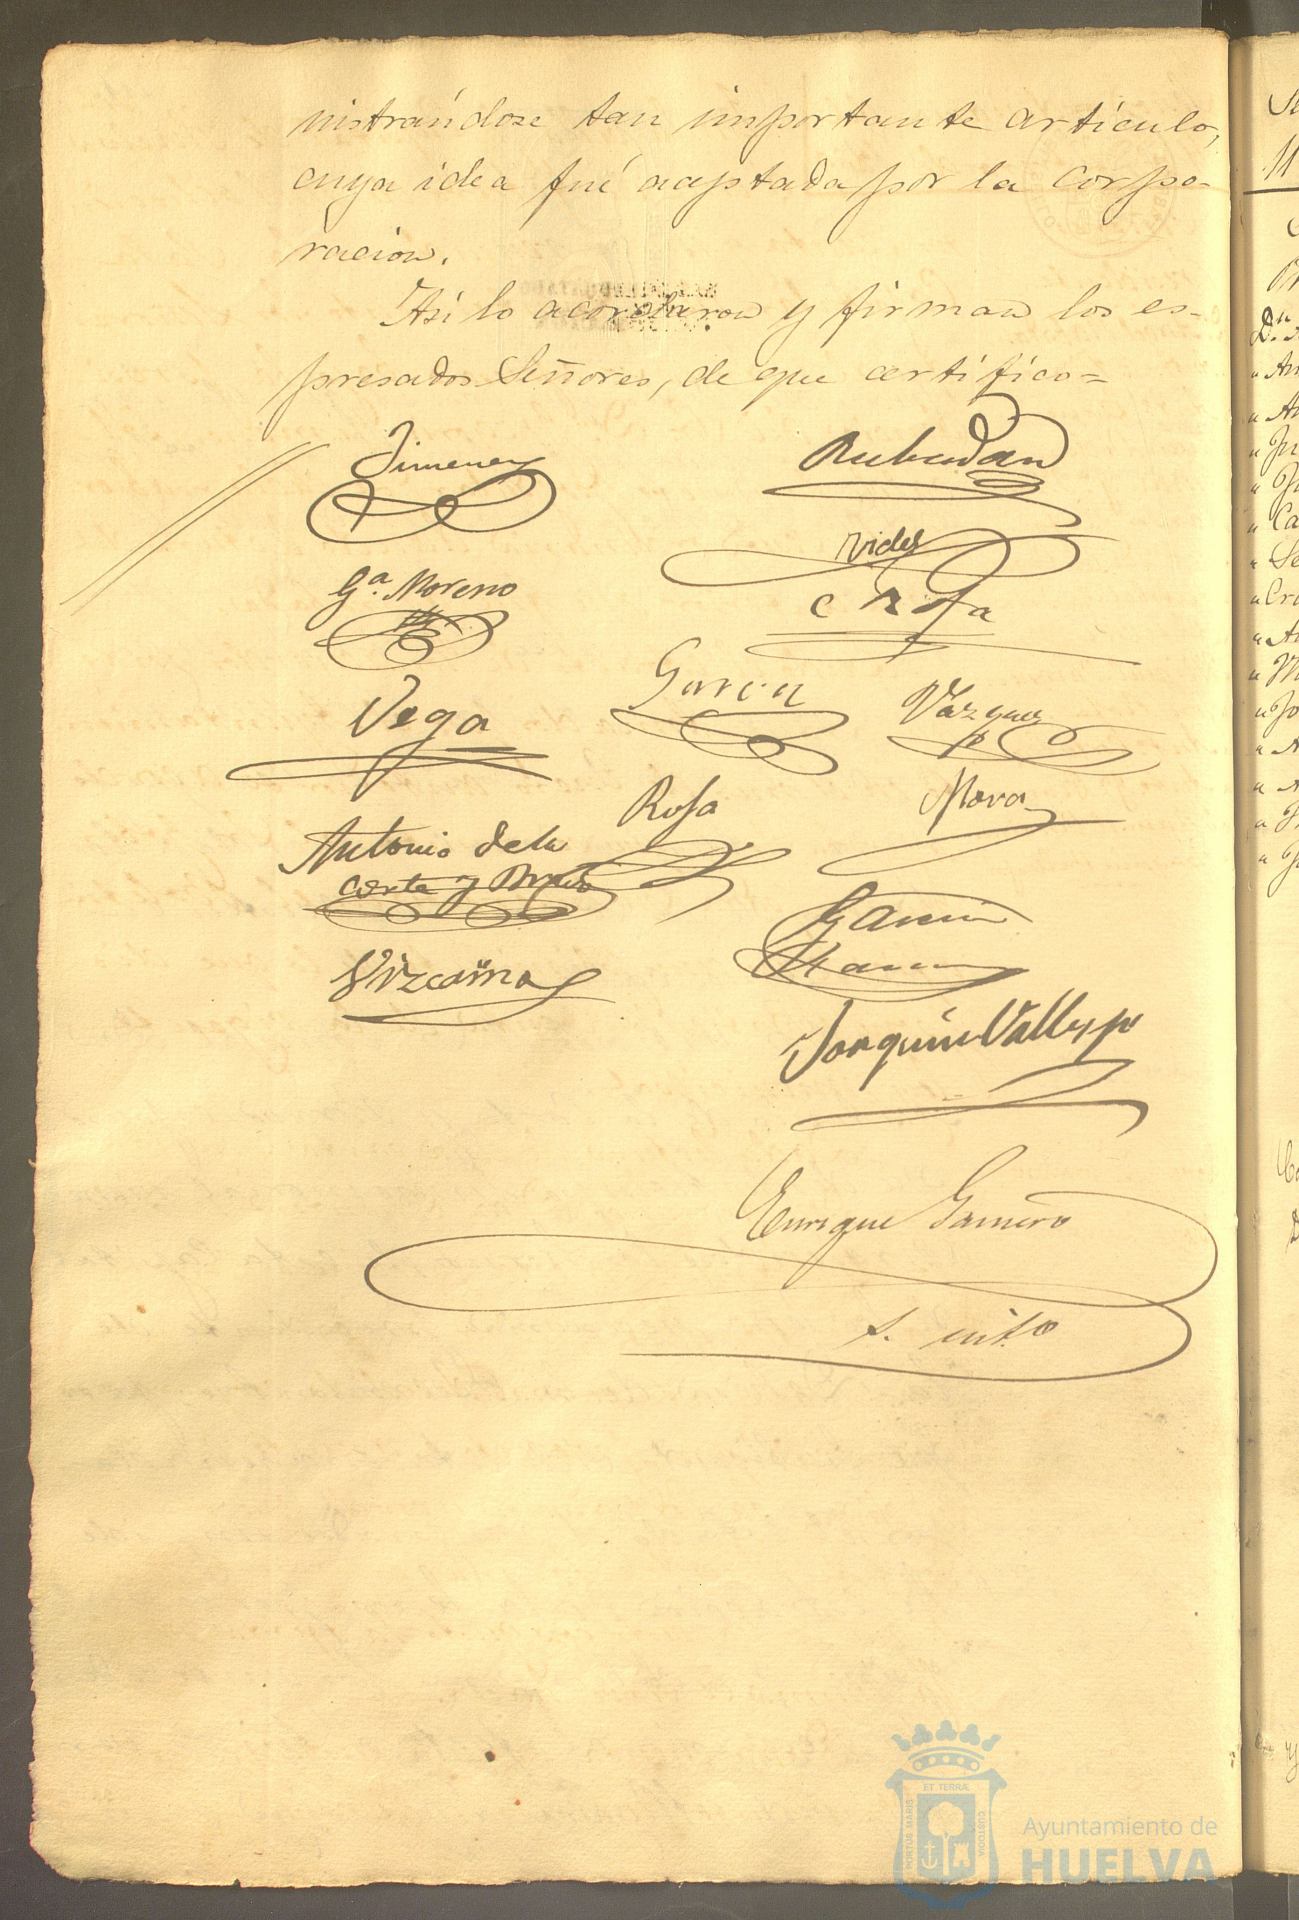 nistrandose tan importante artículo,
cuya idea fué aceptada por la corpo-
racion.
Asi lo acordaron y firman los es-
presados Señores, de que certifico=
Jimenez
Rubadan
Vides
Gª. Moreno
C Rosa
Vega
Garcia
Vazquez
Rosa
Mora
Antonio de la
Corte y Bravo
Garcia
Vizcaino
Joaquin Vallespi
Enrique Gamero
s. intº
PORTUS MARIS
ET TERRÆ
CUSTODIA
Ayuntamiento de
HUELVA